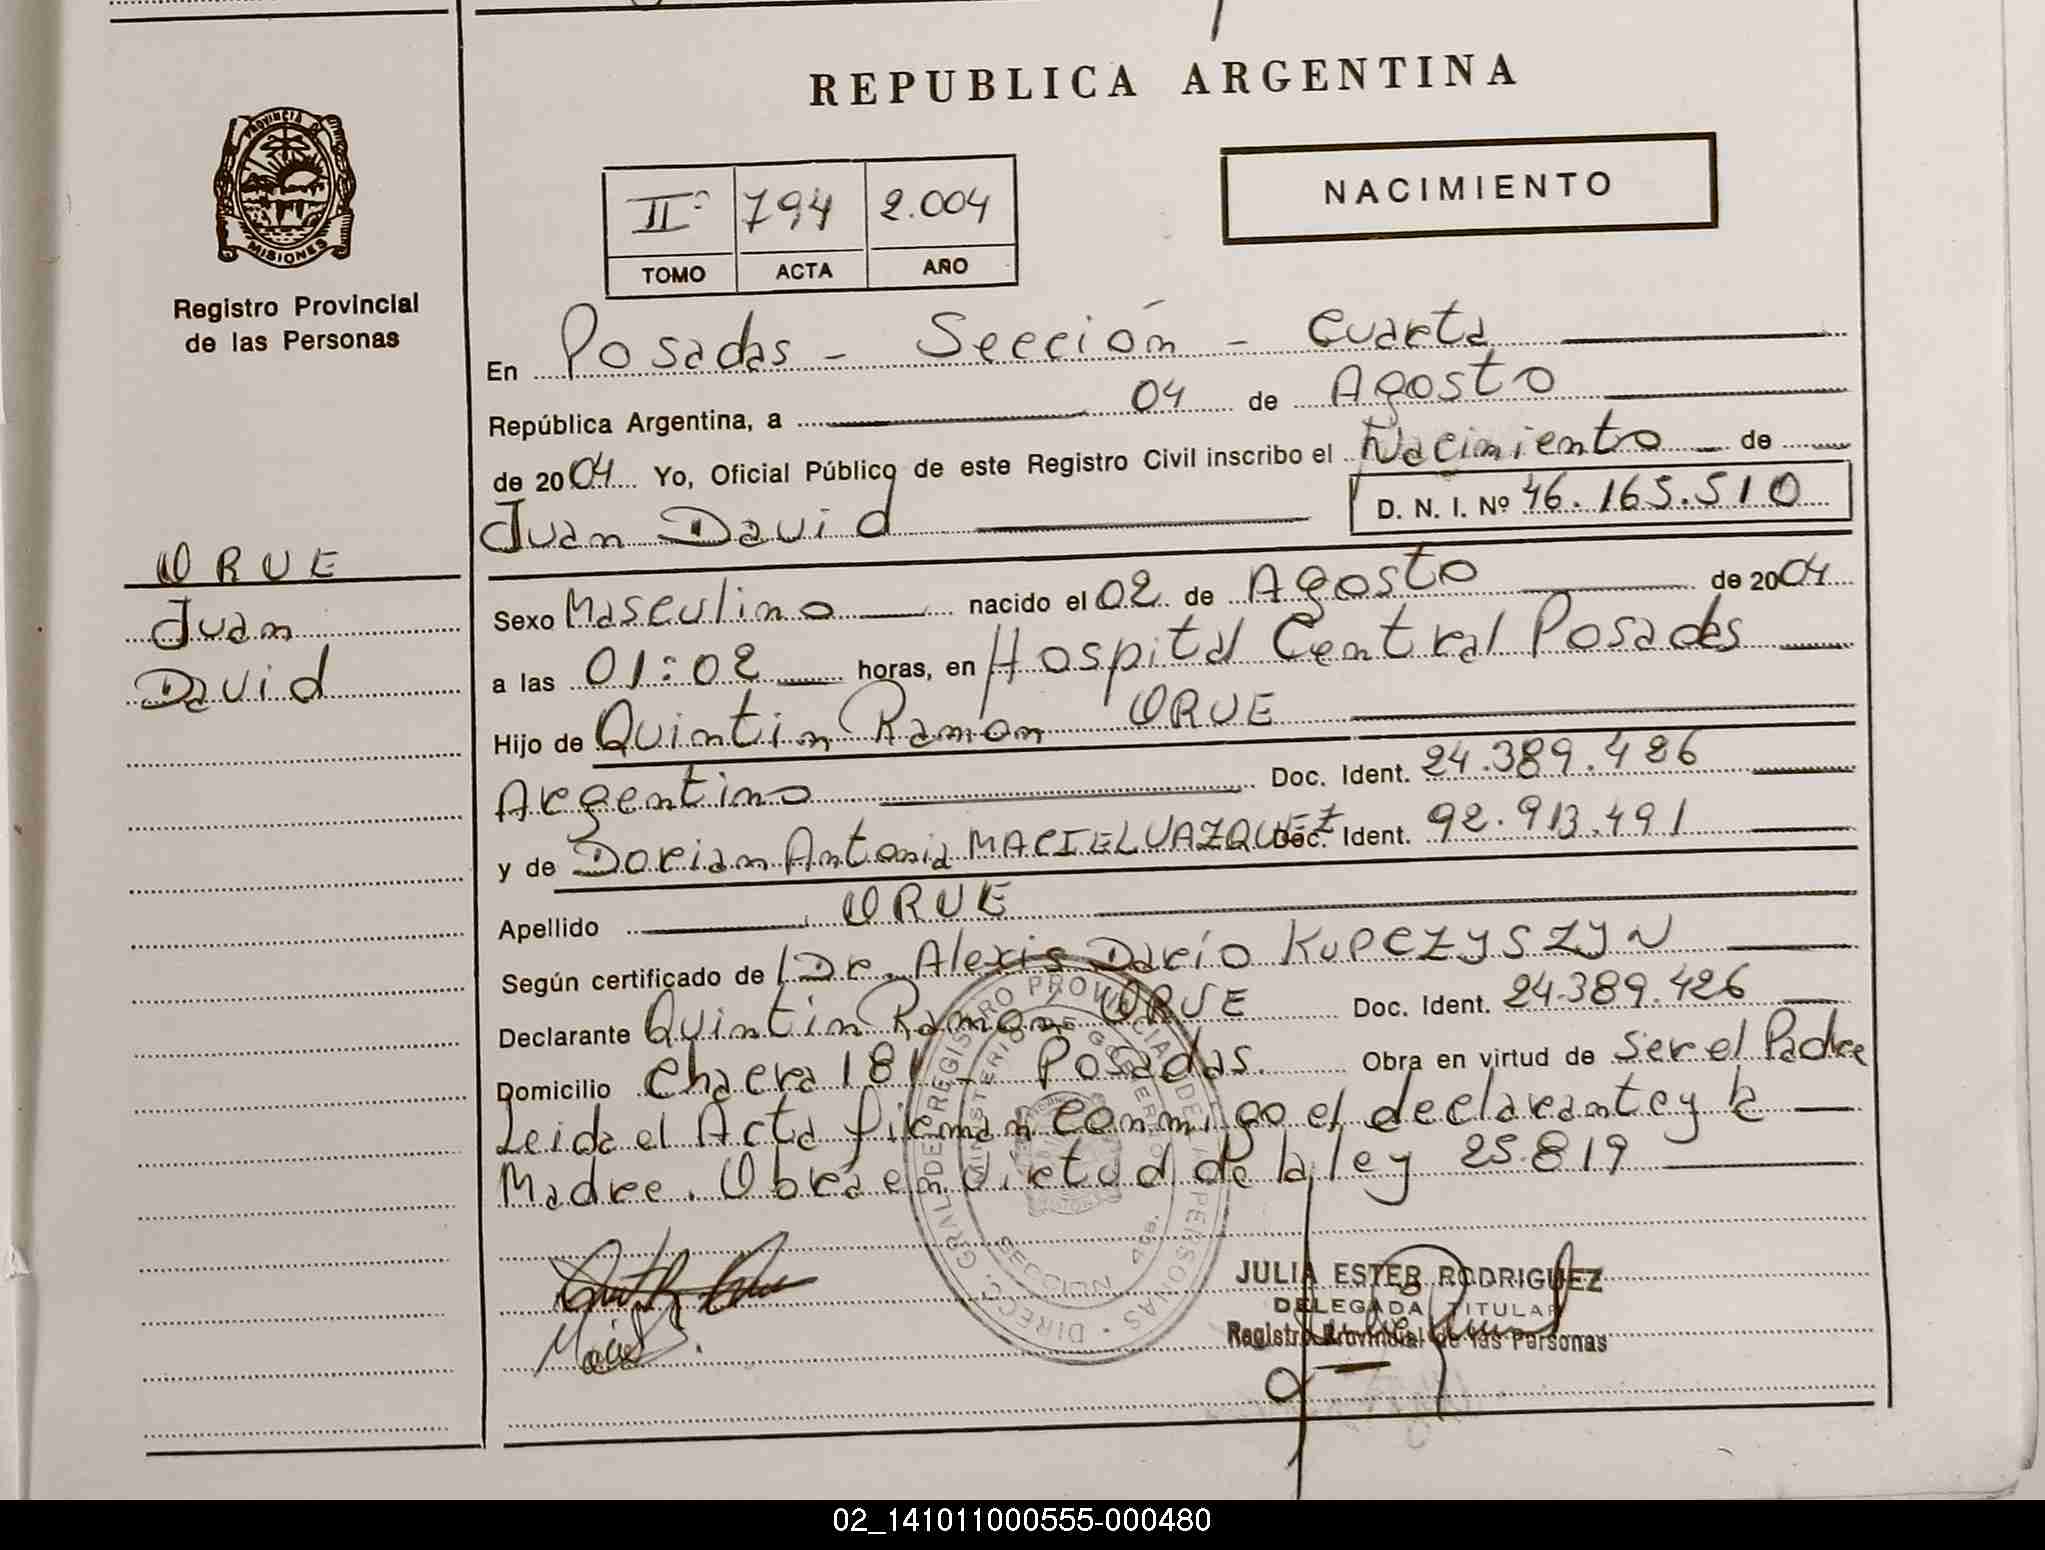 REPUBLICA ARGENTINA
PROVINCIA DE
MISIONES
Registro Provincial
de las Personas
IIº 794 2.004
TOMO ACTA AÑO
NACIMIENTO
En Posadas - Sección - Cuarta
República Argentina, a 04 de Agosto
de 2004 Yo, Oficial Público de este Registro Civil inscribo el Nacimiento de
Juan David D. N. I. Nº 46.165.510
ORUE
Juan
David
Sexo Masculino nacido el 02 de Agosto de 2004
a las 01:02 horas, en Hospital Central Posadas
Hijo de Quintin Ramón ORUE
Argentino Doc. Ident. 24.389.426
y de Dorian Antonia MACIEL VAZQUEZ Doc. Ident. 92.913.491
Apellido ORUE
Según certificado de Dr. Alexis Darío KUPCZYSZYN
Declarante Quintin Ramón ORUE Doc. Ident. 24.389.426
Domicilio Chacra 181 - Posadas. Obra en virtud de Ser el Padre
Leida el Acta firman conmigo el declarante y la
Madre. Obra en virtud de la ley 25.819
DIRECC. GRAL. DE REGISTRO PROVINCIAL DE PERSONAS
MINISTERIO DE GOBIERNO
SECCION 4ta.
JULIA ESTER RODRIGUEZ
DELEGADA TITULAR
Registro Provincial de las Personas
02_141011000555-000480